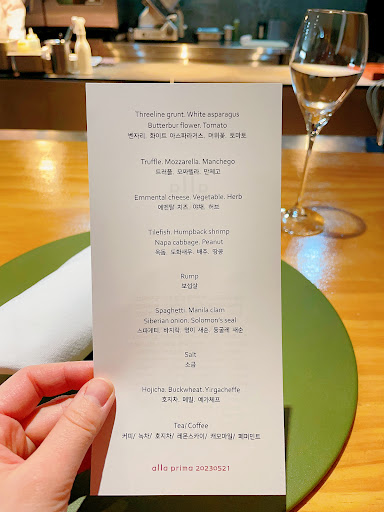 Threeline grunt. White asparagus
Butterbur flower. Tomato
벤자리. 화이트 아스파라거스. 머위꽃. 토마토
Truffle. Mozzarella. Manchego
트러플. 모짜렐라. 만체고
Emmental cheese. Vegetable. Herb
에멘탈 치즈. 야채. 허브
Tilefish. Humpback shrimp
Napa cabbage. Peanut
옥돔. 도화새우. 배추. 땅콩
Rump
보섭살
Spaghetti. Manila clam
Siberian onion. Solomon's seal
스파게티. 바지락. 명이 새순. 둥굴레 새순
Salt
소금
Hojicha. Buckwheat. Yirgacheffe
호지차. 메밀. 예가체프
Tea/ Coffee
커피/ 녹차/ 호지차/ 레몬스카이/ 캐모마일/ 페퍼민트
alla prima 20230521